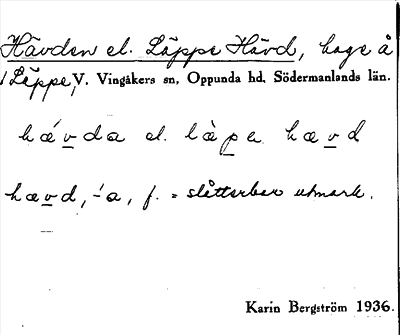 Hävden el. Läppe Hävd, hage å
Läppe, V. Vingåkers sn, Oppunda hd, Södermanlands län.
hævda el. läpe hævd
hævd, -a, f. = slåtterbar utmark.
Karin Bergström 1936.